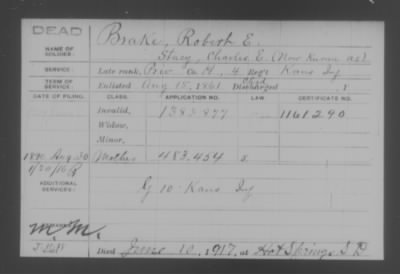 DEAD
NAME OF SOLDIER:
Brake, Robert E.
Stacy, Charlie E. (Now Known as).
SERVICE:
Late rank, Priv. Co. M, 4 Reg't Kans Inf
TERM OF SERVICE:
Enlisted Aug 15, 1861 Discharged , 1
DATE OF FILING. CLASS. APPLICATION NO. LAW. CERTIFICATE NO.
Invalid, 1383.877 1161290
Widow,
Minor,
1890 Aug 30 Mother 483.454 S.
ADDITIONAL SERVICES:
G 10 Kans Inf
REMARKS:
M.M.
Died June 10, 1917, at Hot Springs S D